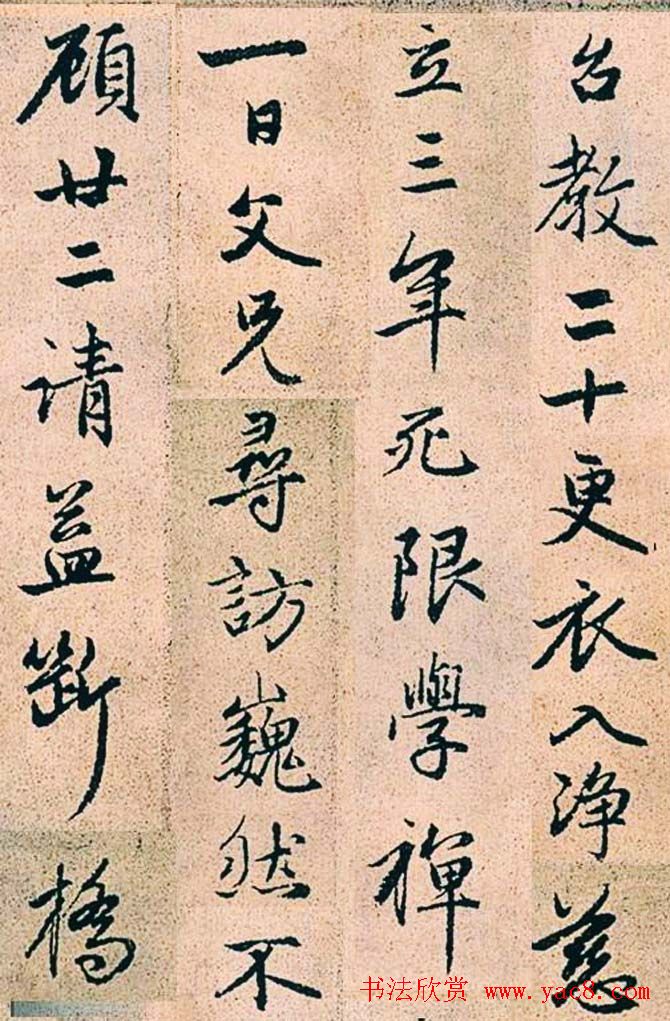 台教二十更衣入净慈
立三年死限學禪
一日父兄尋訪巍然不
顧廿二請益斷橋
书法欣赏 www.yac8.com